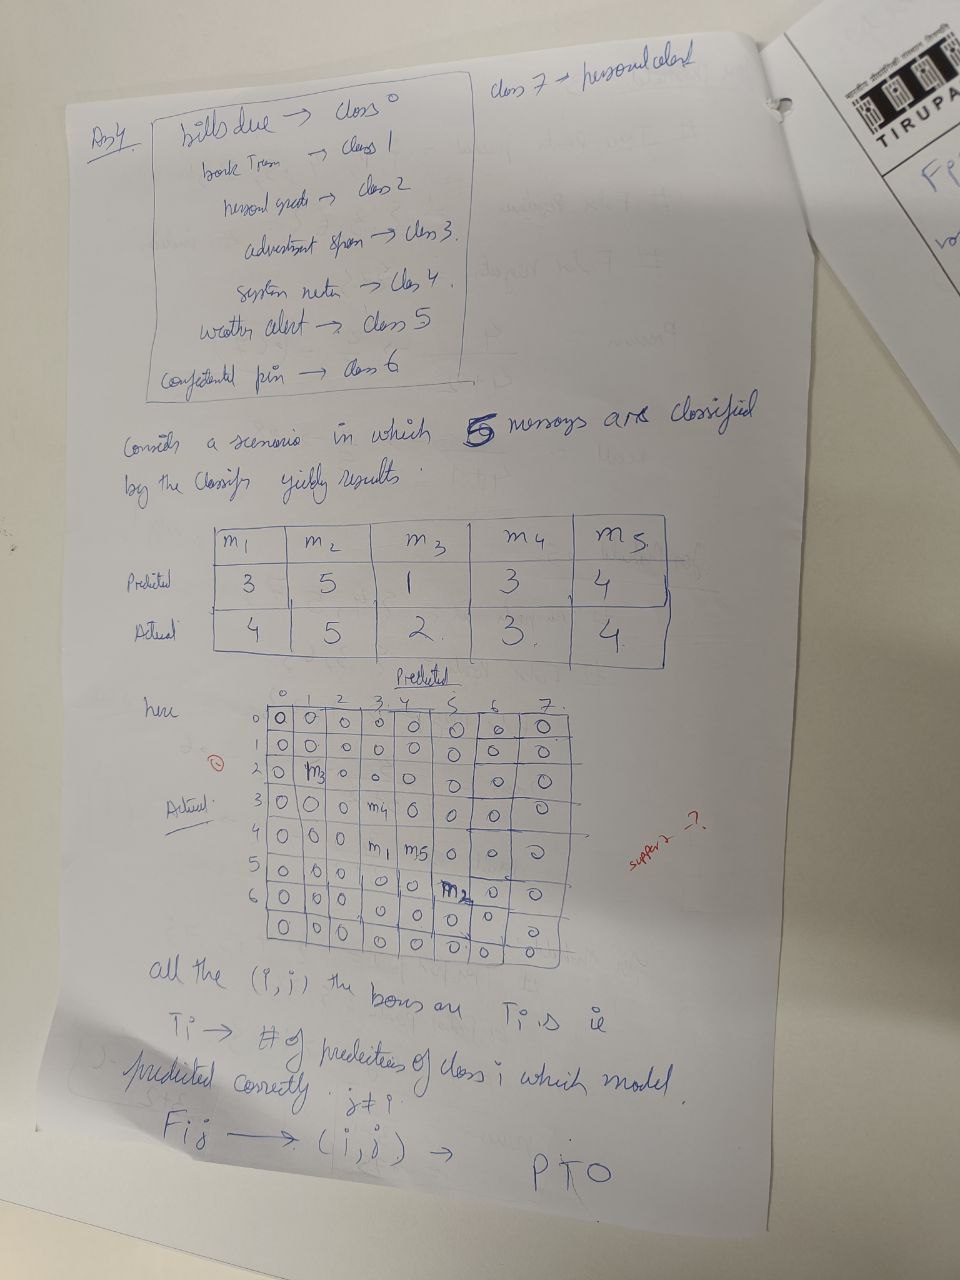 Ans4.
bills due → class 0
class 7 → personal alert
bank Tran → class 1
personal grade → class 2
advertisment spam → class 3.
system → clas 4.
weather alert → class 5
confidental pin → class 6
Consider a scenario in which 5 messages are classified
by the classifier yields results.
m1 m2 m3 m4 m5
Predicted 3 5 1 3 4
Actual 4 5 2. 3. 4.
Predicted
here
0 1 2 3 4 5 6 7.
0 0 0 0 0 0 0 0 0
1 0 0 0 0 0 0 0 0
2 0 m3 0 0 0 0 0 0
3 0 0 0 m4 0 0 0 0
Actual
4 0 0 0 m1 m5 0 0 0
5 0 0 0 0 0 m2 0 0
6 0 0 0 0 0 0 0 0
0 0 0 0 0 0 0 0
support → ?
all the (i,i) the boxes are Ti's ie
Ti → # of predictions of class i which model
predicted correctly.
j≠i
Fij → (i,j) →
PTO
TIRUPA